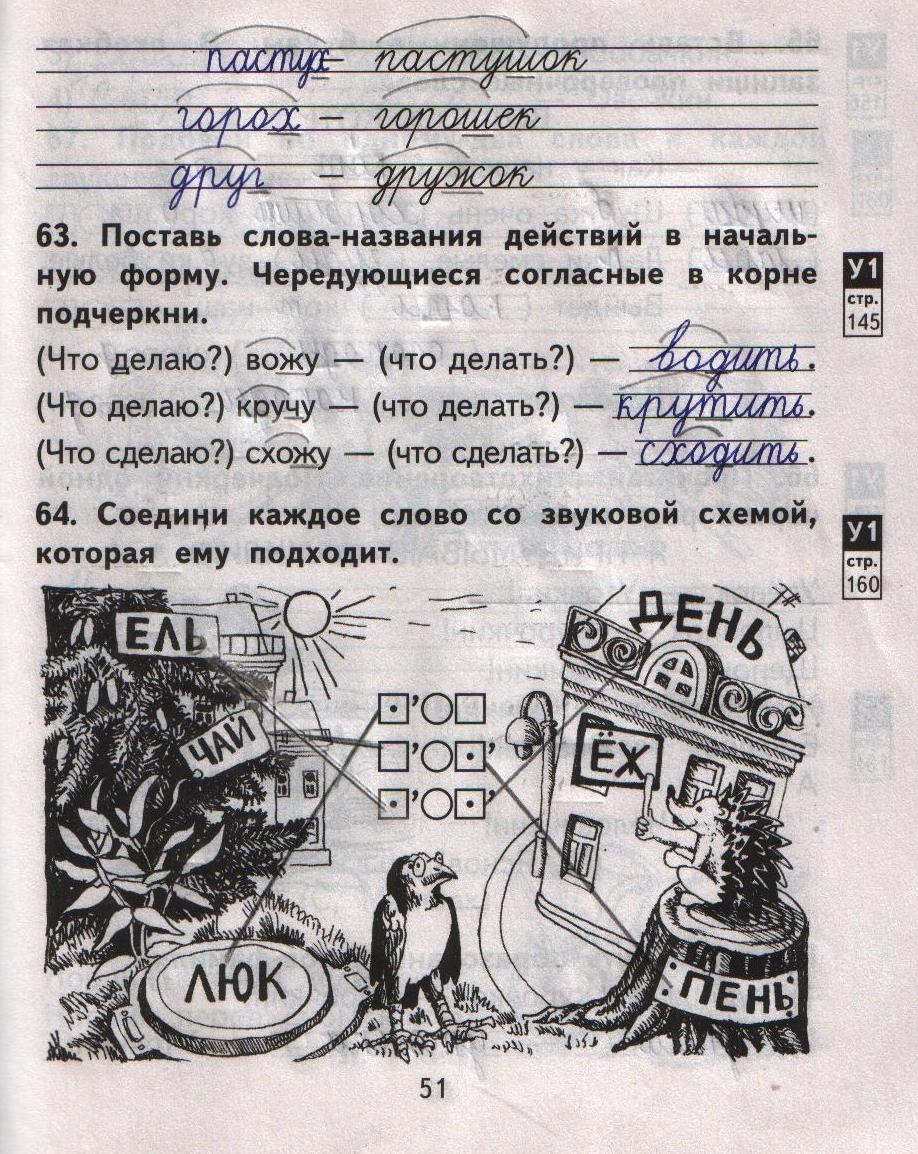 пастух – пастушок
горох – горошек
друг – дружок
63. Поставь слова-названия действий в началь-
ную форму. Чередующиеся согласные в корне
подчеркни.
У1
стр.
145
(Что делаю?) вожу — (что делать?) — водить.
(Что делаю?) кручу — (что делать?) — крутить.
(Что сделаю?) схожу — (что сделать?) — сходить.
64. Соедини каждое слово со звуковой схемой,
которая ему подходит.
У1
стр.
160
ЕЛЬ
ДЕНЬ
ЧАЙ
ЁЖ
ЛЮК
ПЕНЬ
51